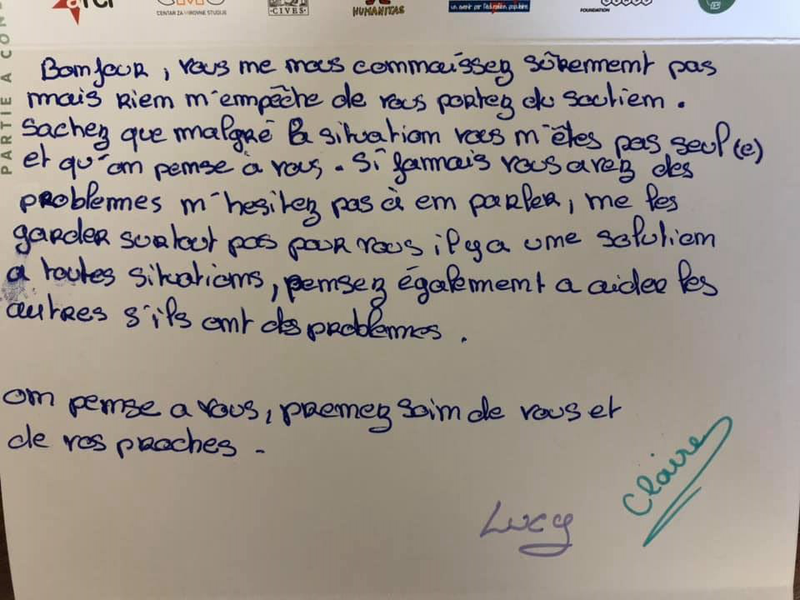 CENTAR ZA MIROVNE STUDIJE
CIVES
HUMANITAS
un avenir par l'éducation populaire
FOUNDATION
PARTIE A CON
Bonjour, vous ne nous connaissez sûrement pas
mais rien n'empêche de vous portez du soutien.
Sachez que malgré la situation vous n'êtes pas seul(e)
et qu'on pense à vous. Si jamais vous avez des
problemes n'hesitez pas à en parler, ne les
garder surtout pas pour vous il y a une solution
a toutes situations, pensez également a aider les
autres s'ils ont des problemes.
on pense a vous, prenez soin de vous et
de vos proches.
Claire
Lucy